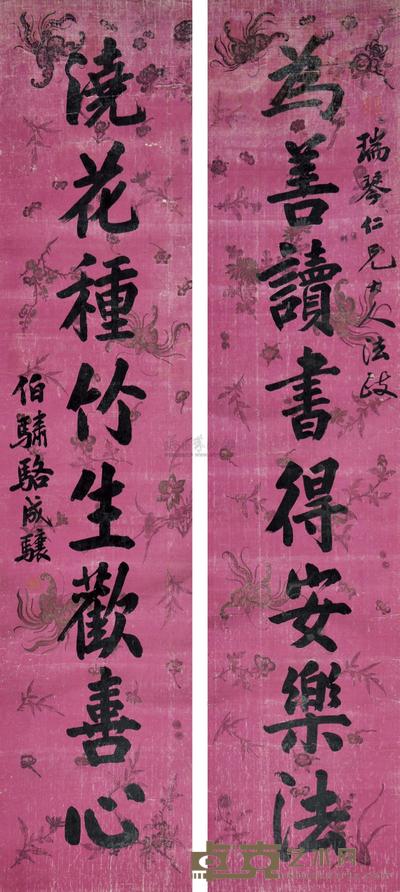 瑞琴仁兄大人法政
为善讀書得安樂法
澆花種竹生歡喜心
伯驌駱成驤
艺术网